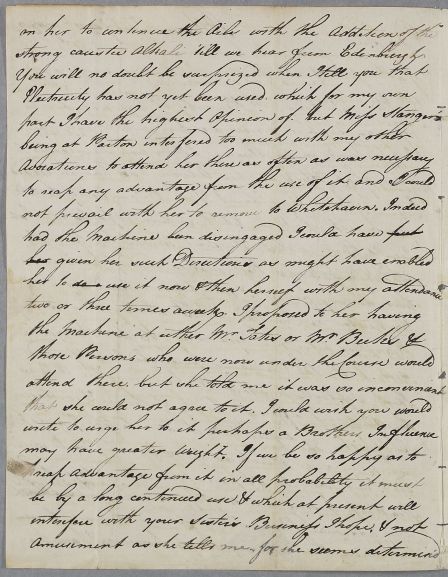 on her to continue the Acid with the Addition of the
strong caustic Alkali till we hear from Edinburgh
You will no doubt be surprized when I tell you that
Electricity has not yet been used which for my own
part I have the highest Opinion of. but Miss Stanger's
being at Parton interfered too much with my other
Avocations to attend her there as often as was necessary
to reap any advantage from the use of it and I could
not prevail with her to remove to Whitehaven. Indeed
had the Machine been disingaged I could have
given her such Directions as might have enabled
her to use it now & then herself with my attendance
two or three times a week. I proposed to her having
the Machine at either Mr. Tates or Mr. Becks &
those Persons who were now under the Course would
attend there, but she told me it was so inconvenient
that she could not agree to it. I could wish you would
write to urge her to it perhaps a Brothers Influence
may have greater Weight. If we be so happy as to
reap Advantage from it in all probability it must
be by a long continued use & which at present will
interfere with your Sister's Business I hope, & not
Amusement as she tells me, for she seems determined